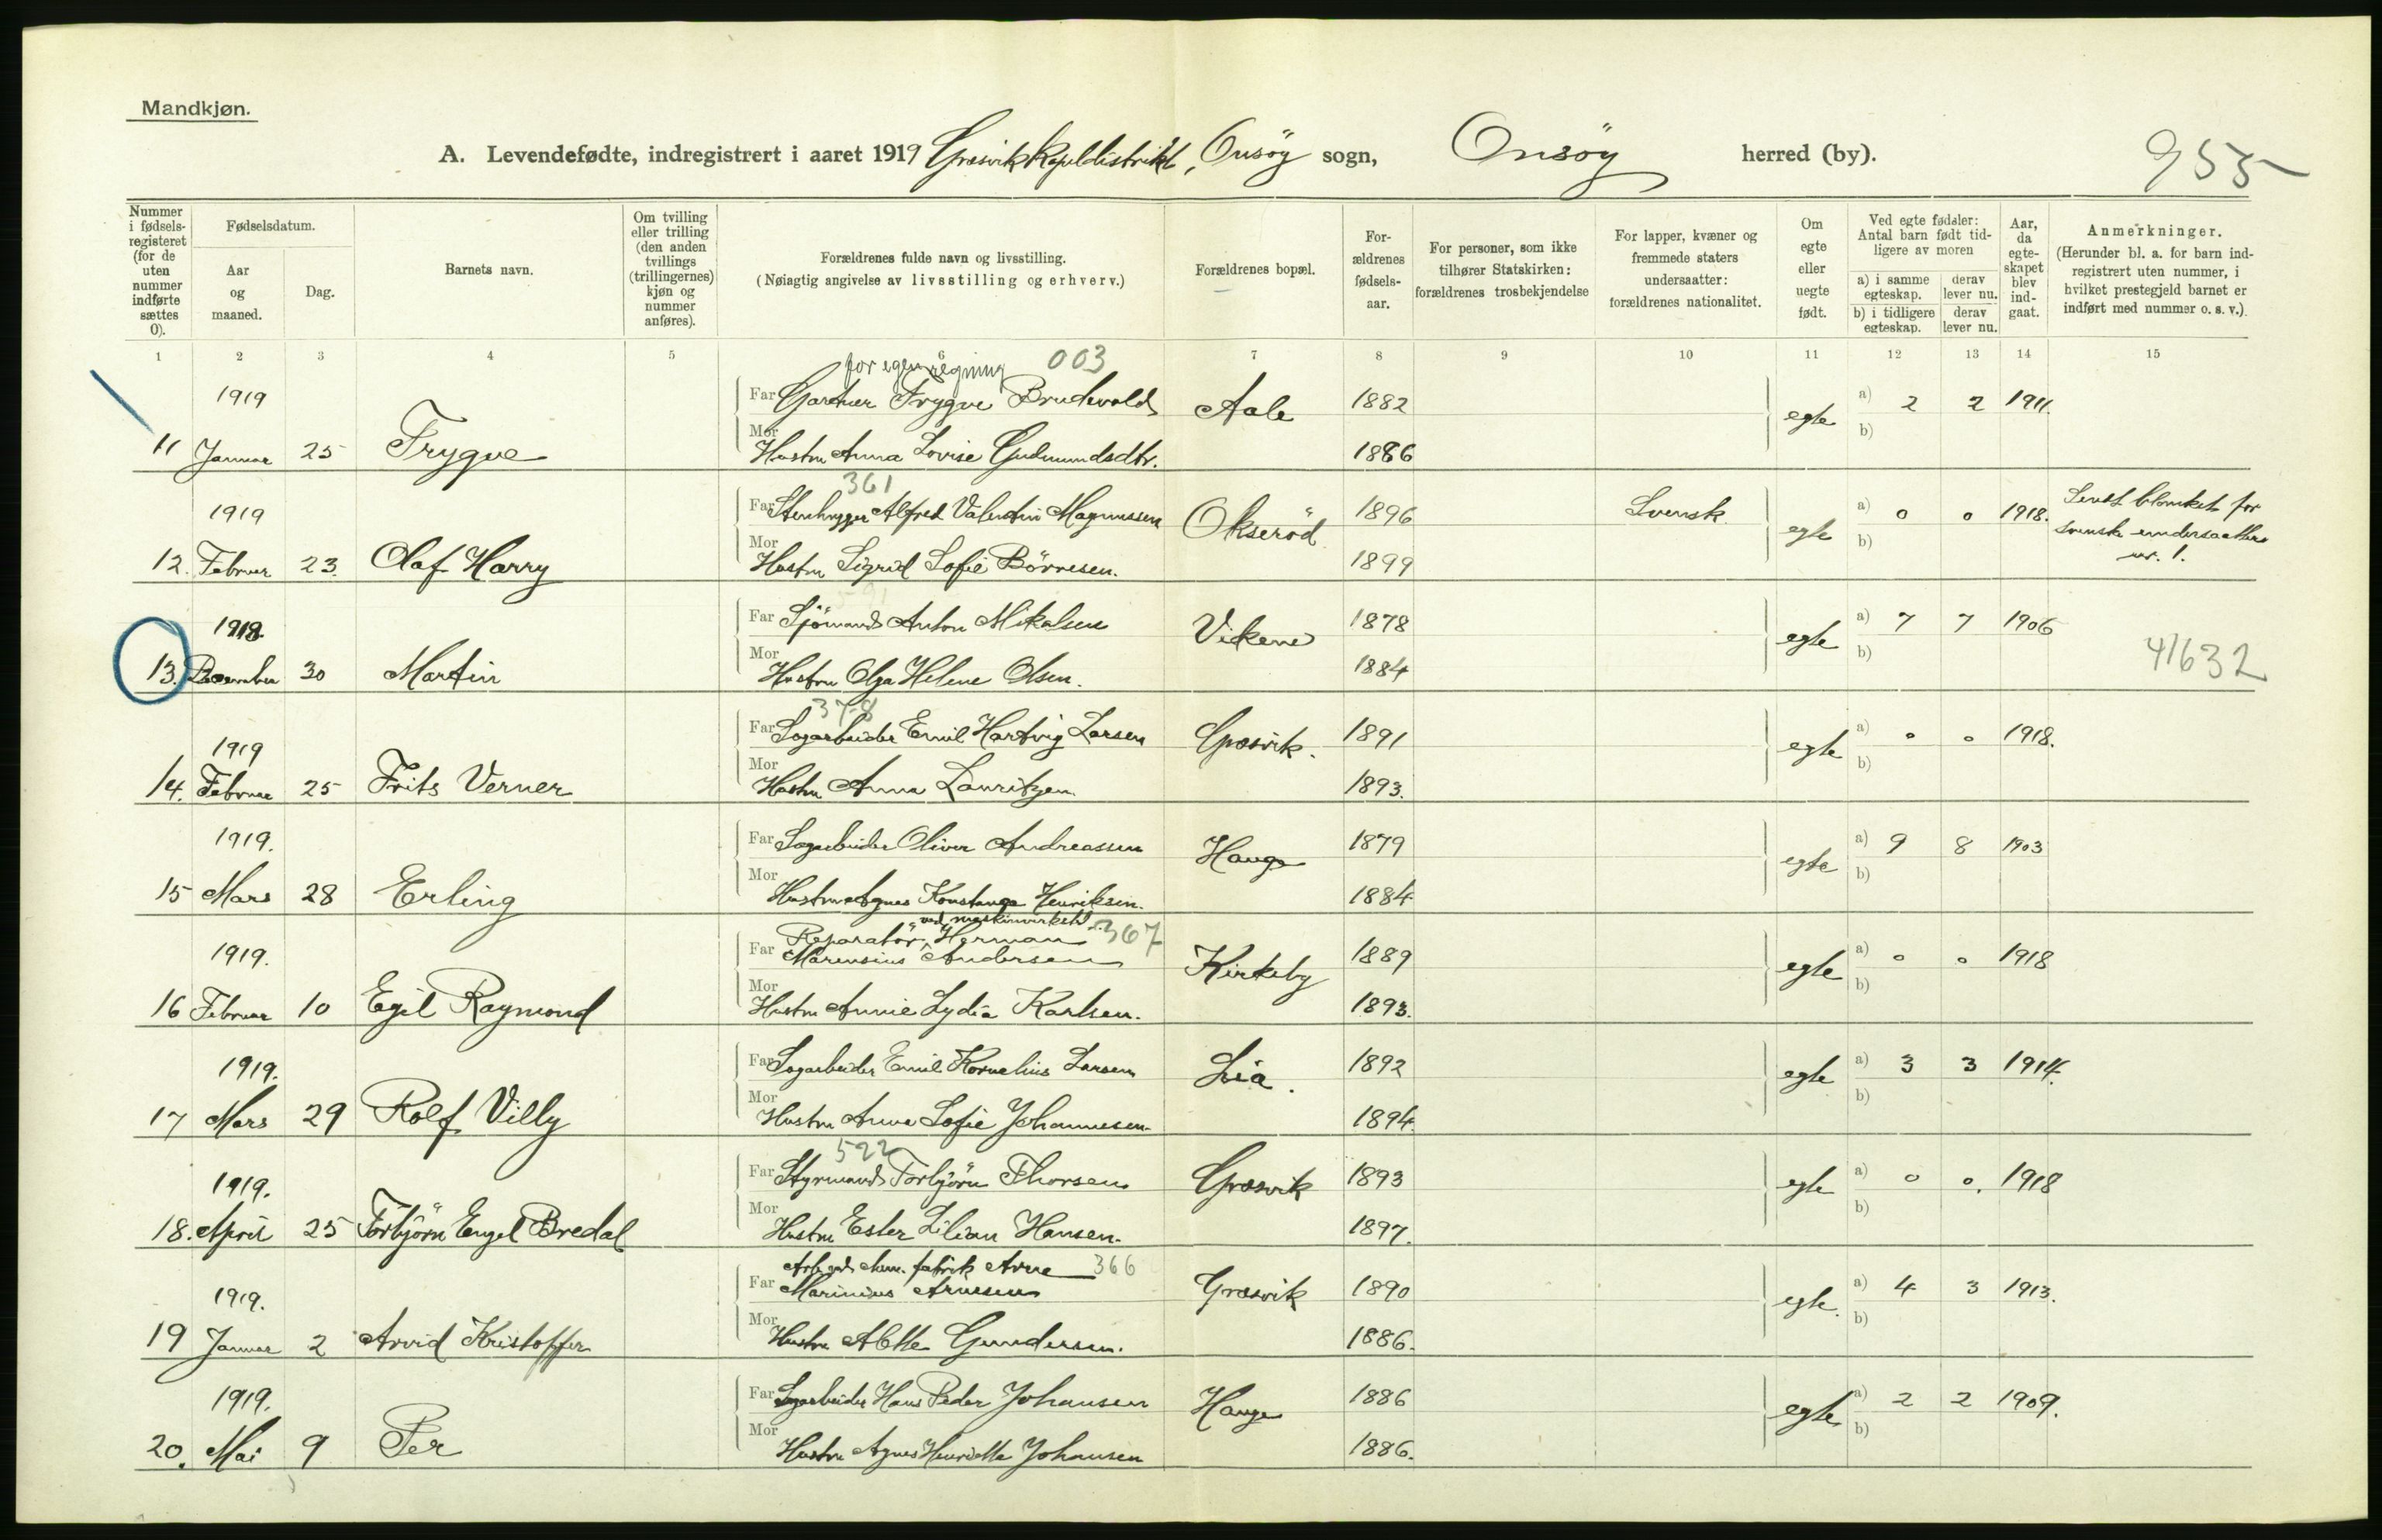 Mandkjøn.
A. Levendefødte, indregistrert i aaret 1919 Græsvik Kapeldistrikt, Onsöy sogn, Onsöy herred (by).
955
Nummer i fødsels-registeret (for de uten nummer indførte sættes 0).
Fødselsdatum.
Aar og maaned.
Dag.
Barnets navn.
Om tvilling eller trilling (den anden tvillings (trillingernes) kjøn og nummer anføres).
Forældrenes fulde navn og livsstilling.
(Nøiagtig angivelse av livsstilling og erhverv.)
Forældrenes bopæl.
For-ældrenes fødsels-aar.
For personer, som ikke tilhører Statskirken: forældrenes trosbekjendelse
For lapper, kvæner og fremmede staters undersaatter: forældrenes nationalitet.
Om egte eller uegte født.
Ved egte fødsler: Antal barn født tid-ligere av moren
a) i samme egteskap.
derav lever nu.
b) i tidligere egteskap.
derav lever nu.
Aar, da egte-skapet blev ind-gaat.
Anmerkninger.
(Herunder bl. a. for barn ind-registrert uten nummer, i hvilket prestegjeld barnet er indført med nummer o. s. v.)
1 2 3 4 5 6 7 8 9 10 11 12 13 14 15
for egen regning 003
1919 Far Gartner Trygve Brudevold Aale 1882 egte a) 2 2 1911.
11 Januar 25 Trygve Mor Hustru Anna Lovise Gudmundsdtr. 1886 b)
361
1919 Far Stenhugger Alfred Valentin Magnussen Okseröd 1896 Svensk egte a) 0 0 1918. Sendt blanket for svenske undersaatter nr. 1.
12. Februar 23. Olaf Harry Mor Hustru Sigrid Sofie Börresen. 1899 b)
1918. Far Sjömand Anton Mikalsen Vikene 1878 egte a) 7 7 1906
13. December 30 Martin Mor Hustru Olga Helene Olsen. 1884 b) 41632
378
1919 Far Sagarbeider Emil Hartvig Larsen Græsvik. 1891 egte a) 0 0 1918.
14. Februar 25 Frits Verner Mor Hustru Anna Lauritzen 1893. b)
1919. Far Sagarbeider Oliver Andreassen Hauge 1879 egte a) 9 8 1903
15 Mars 28 Erling Mor Hustru Agnes Konstanse Henriksen. 1884 b)
ved maskinverksted 367
1919. Far Reparatör, Herman Marensius Andersen Kirkeby 1889 egte a) 0 0 1918
16 Februar 10 Egil Raymond Mor Hustru Annie Lydia Karlsen. 1893. b)
1919. Far Sagarbeider Emil Kornelius Larsen Lia. 1892 egte a) 3 3 1914.
17 Mars 29 Rolf Villy Mor Hustru Anna Sofie Johannesen 1894. b)
522
1919. Far Styrmand Torbjörn Thorsen Græsvik 1893 egte a) 0 0. 1918
18. April 25 Torbjörn Engel Bredal Mor Hustru Ester Lilian Hansen. 1897. b)
Arb. ved chem. fabrik Arne 366
1919. Far Marinius Arnesen Græsvik 1890 egte. a) 4 3 1913.
19 Januar 2 Arvid Kristoffer Mor Hustru Alette Gundersen. 1886. b)
1919. Far Sagarbeider Hans Peder Johansen Hauge 1886 egte a) 2 2 1909.
20. Mai 9 Per Mor Hustru Agnes Henriette Johansen 1886. b)